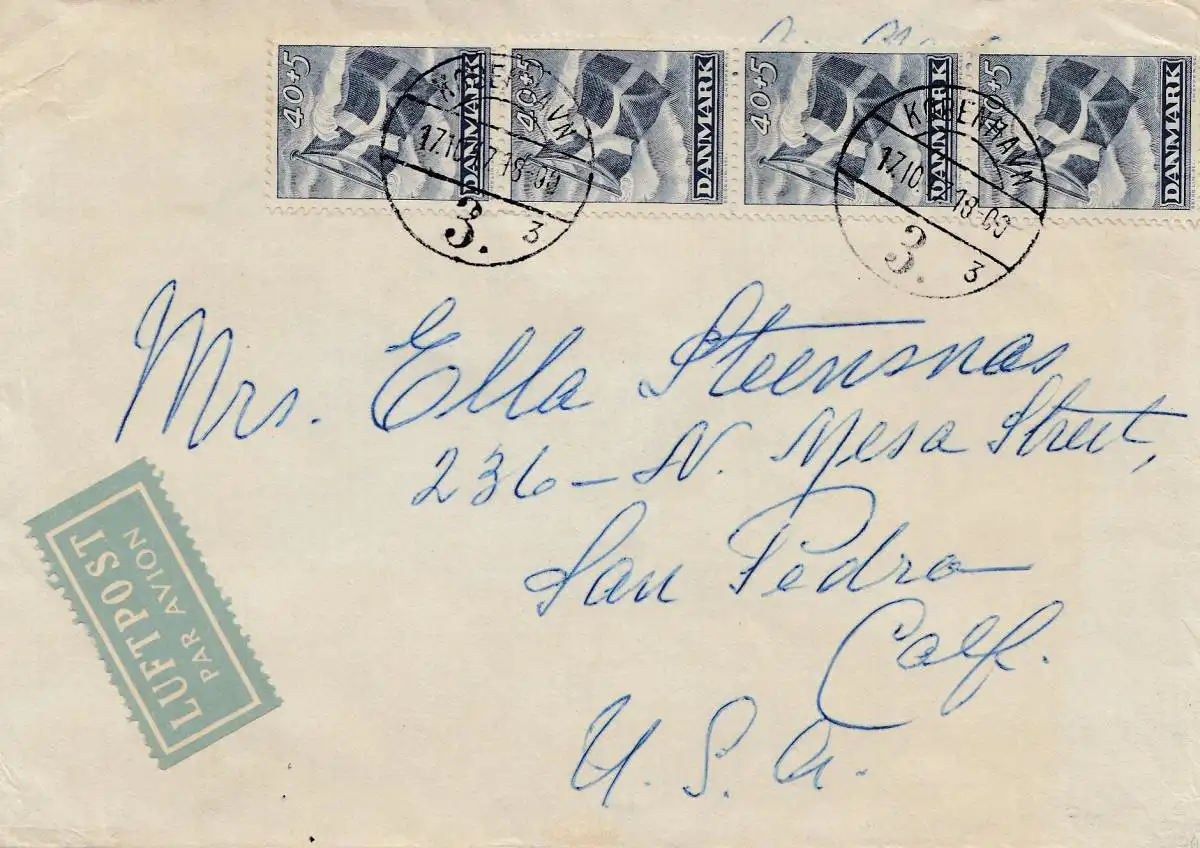 40+5 DANMARK 40+5 DANMARK 40+5 DANMARK 40+5 DANMARK
KØBENHAVN
17.10.47.18-00
3. 3
KØBENHAVN
17.10. 18-00
3. 3
Mrs. Ella Steensnas
236-N. Mesa Street,
San Pedro
Calf.
U.S.A.
LUFTPOST
PAR AVION